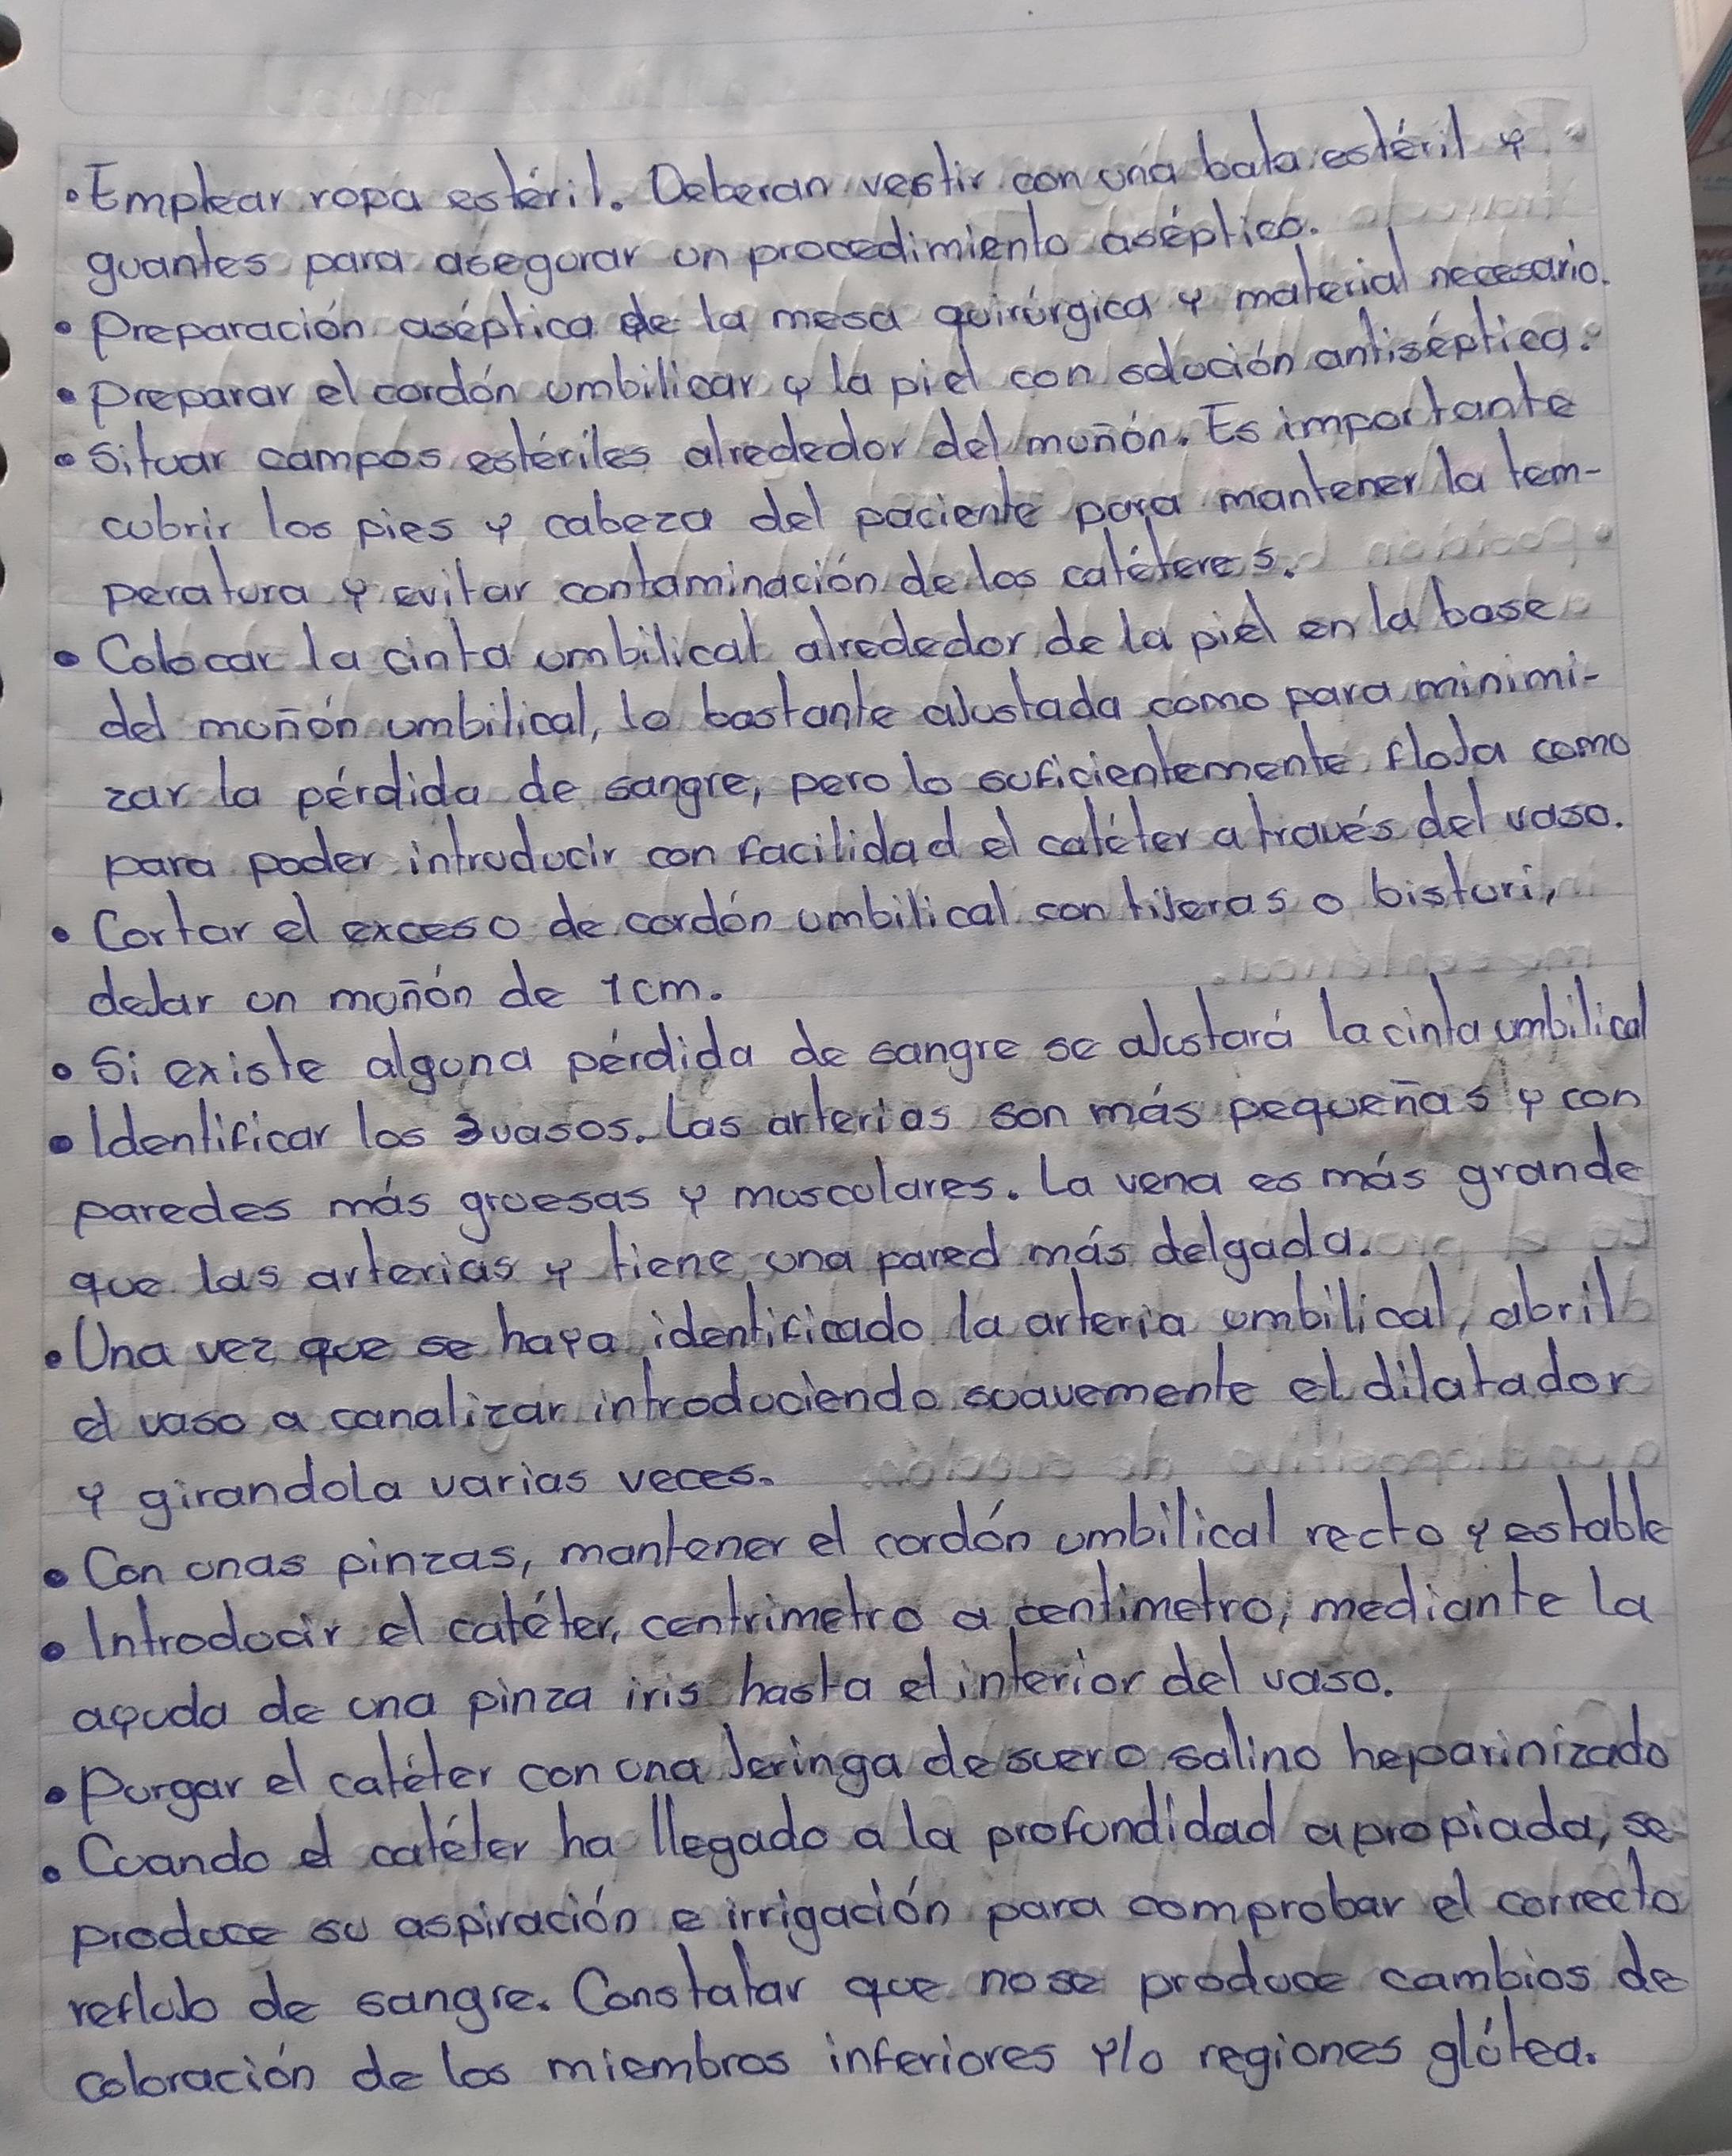 • Emplear ropa estéril. Deberan vestir con una bata estéril y
guantes para asegurar un procedimiento aséptico.
• Preparación aséptica de la mesa quirúrgica y material necesario.
• Preparar el cordón umbilicar y la piel con solución antiséptica.
• Situar campos estériles alrededor del muñón. Es importante
cubrir los pies y cabeza del paciente para mantener la tem-
peratura y evitar contaminación de los catéteres.
• Colocar la cinta umbilical alrededor de la piel en la base
del muñón umbilical, lo bastante ajustada como para minimi-
zar la pérdida de sangre, pero lo suficientemente floja como
para poder introducir con facilidad el catéter a través del vaso.
• Cortar el exceso de cordón umbilical con tijeras o bisturi,
dejar un muñón de 1cm.
• Si existe alguna pérdida de sangre se ajustará la cinta umbilical
• Identificar los 3 vasos. Las arterias son más pequeñas y con
paredes más gruesas y musculares. La vena es más grande
que las arterias y tiene una pared más delgada.
• Una vez que se haya identificado la arteria umbilical, abril
el vaso a canalizar introduciendo suavemente el dilatador
y girandola varias veces.
• Con unas pinzas, mantener el cordón umbilical recto y estable
• Introducir el catéter, centrimetro a centimetro, mediante la
ayuda de una pinza iris hasta el interior del vaso.
• Purgar el catéter con una jeringa de suero salino heparinizado
• Cuando el catéter ha llegado a la profundidad apropiada, se
produce su aspiración e irrigación para comprobar el correcto
reflujo de sangre. Constatar que no se produce cambios de
coloración de los miembros inferiores y/o regiones glútea.